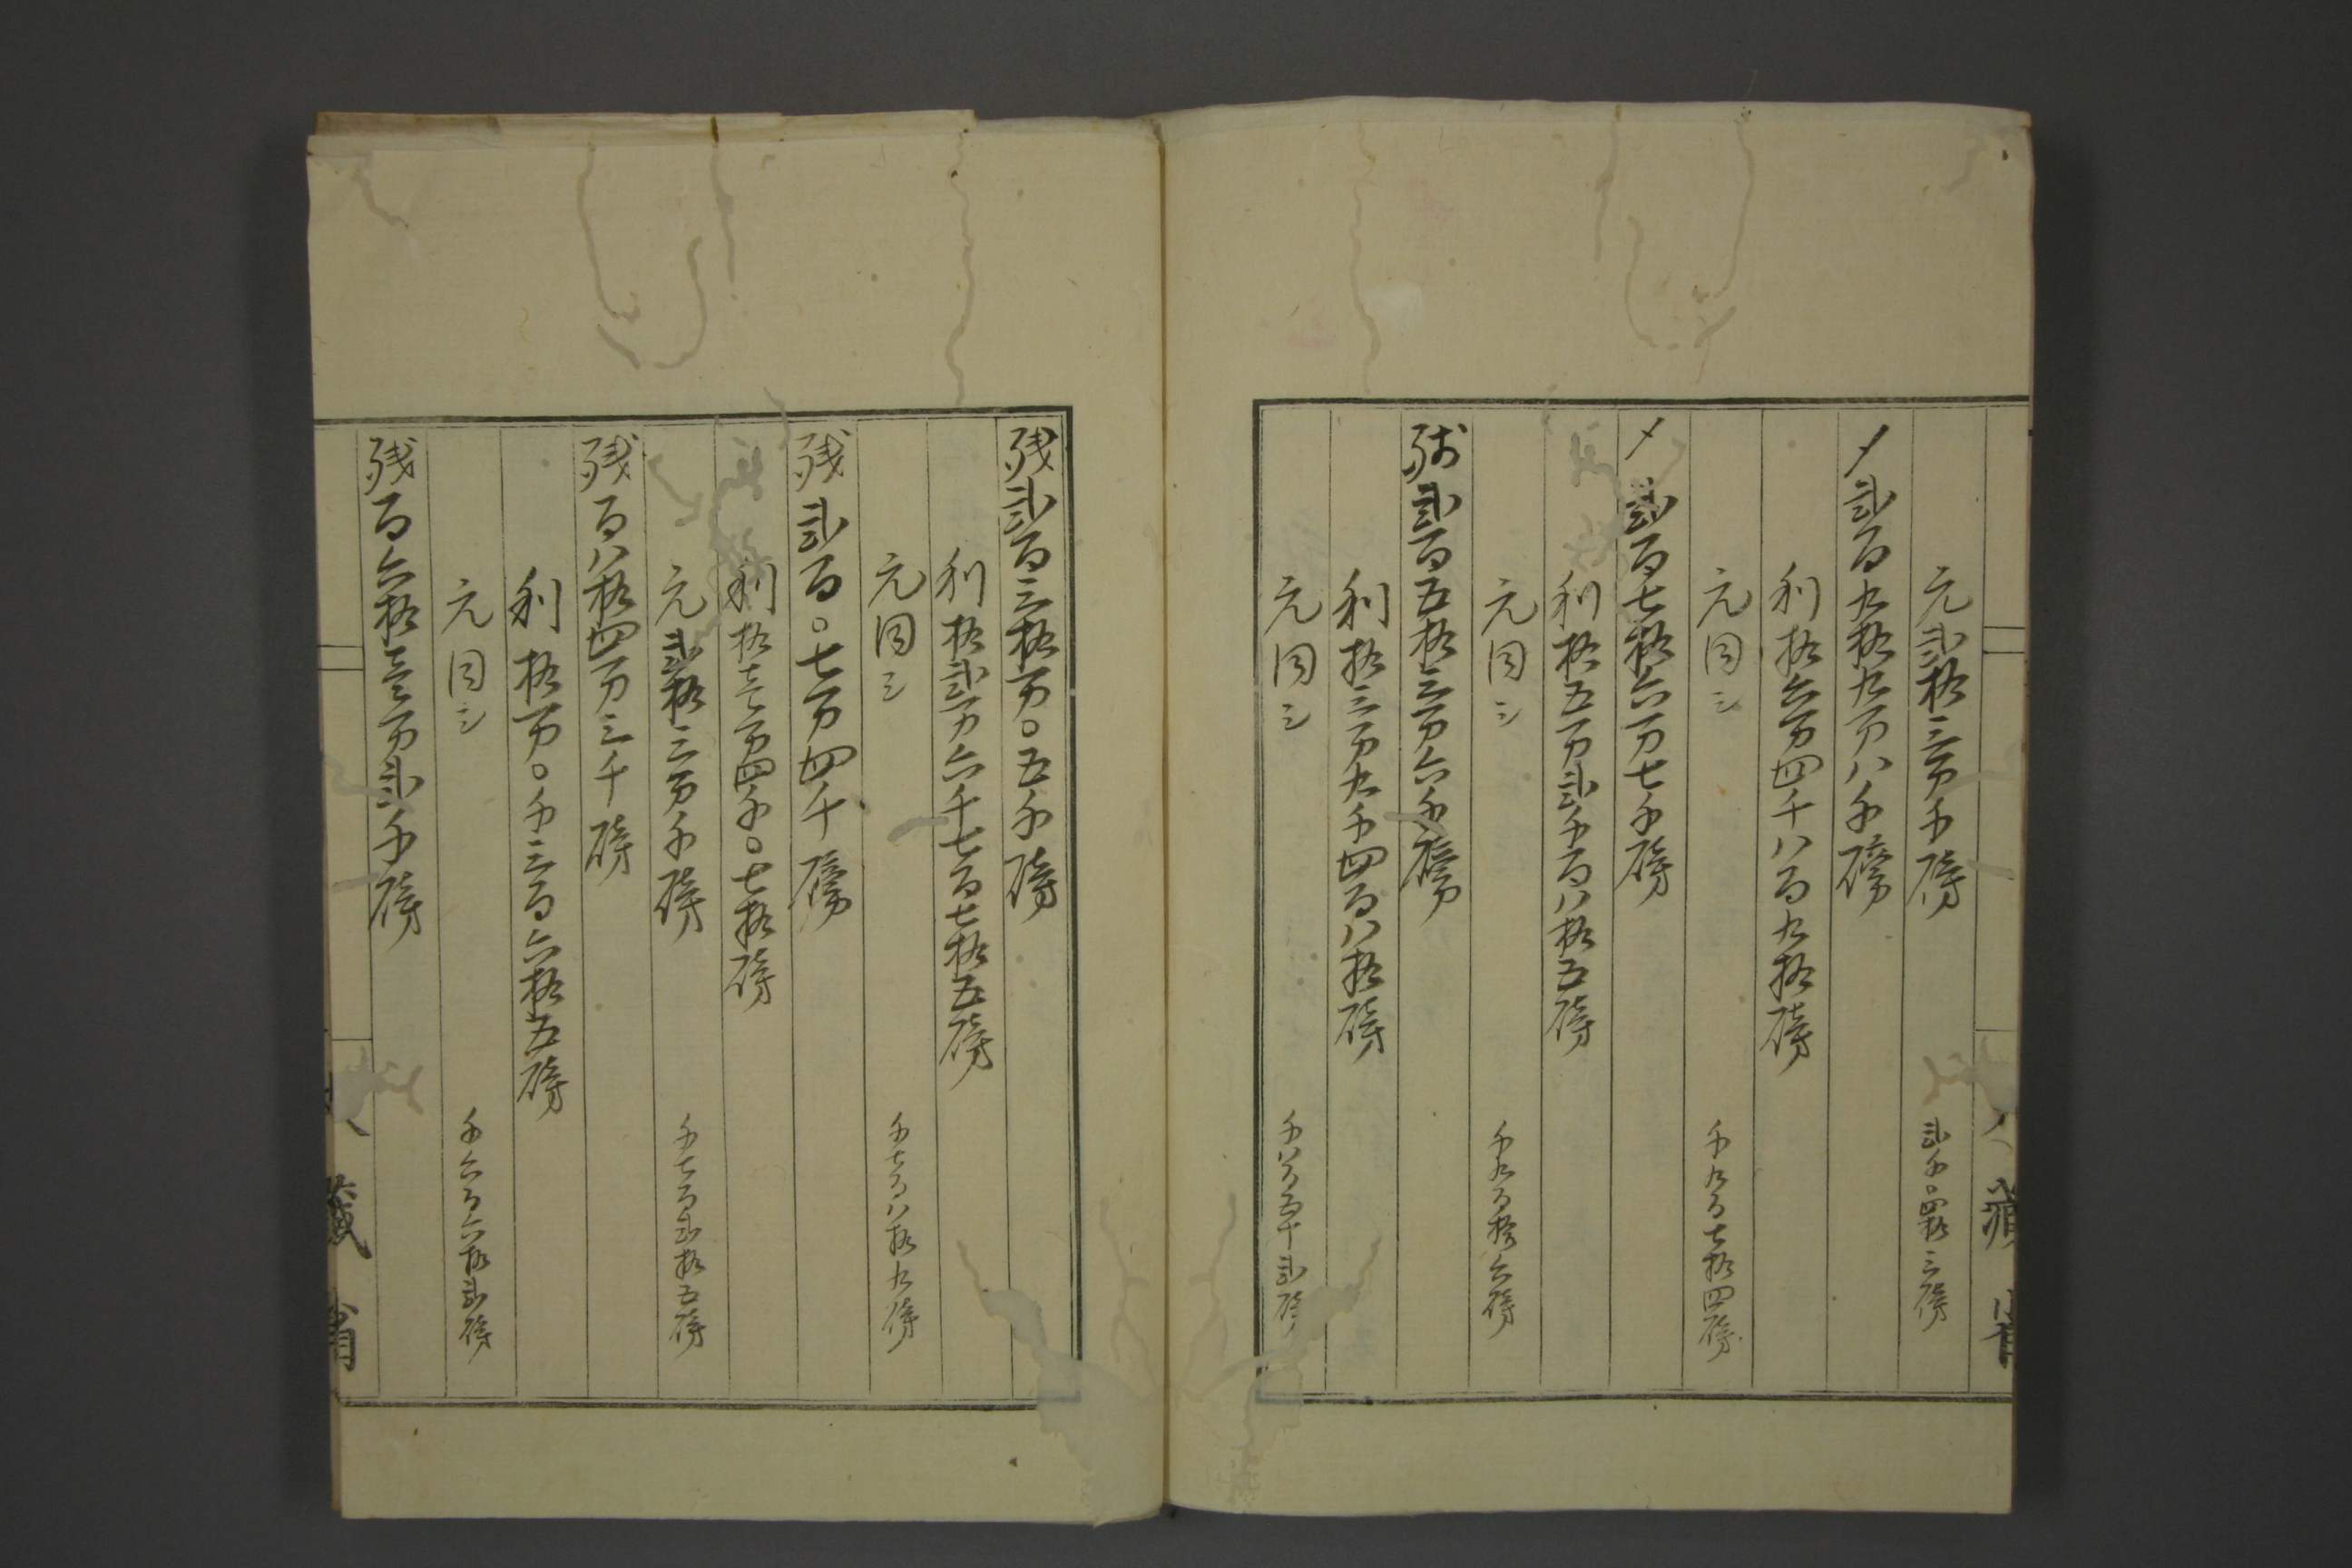 元弐拾三万千磅 弐千〇四拾三磅
〆弐百九拾九万八千磅
利拾六万四千八百九拾磅
元同シ 千九百七拾四磅
〆弐百七拾六万七千磅
利拾五万弐千百八拾五磅
元同シ 千九百拾六磅
残弐百五拾三万六千磅
利拾三万九千四百八拾磅
元同シ 千八百五十弐磅
残弐百三拾万〇五千磅
利拾弐万六千七百七拾五磅
元同シ 千七百八拾九磅
残弐百〇七万四千磅
利拾壱万四千〇七拾磅
元弐拾三万千磅 千七百弐拾五磅
残百八拾四万三千磅
利拾万〇千三百六拾五磅
元同シ 千六百六拾弐磅
残百六拾壱万弐千磅
蔵省